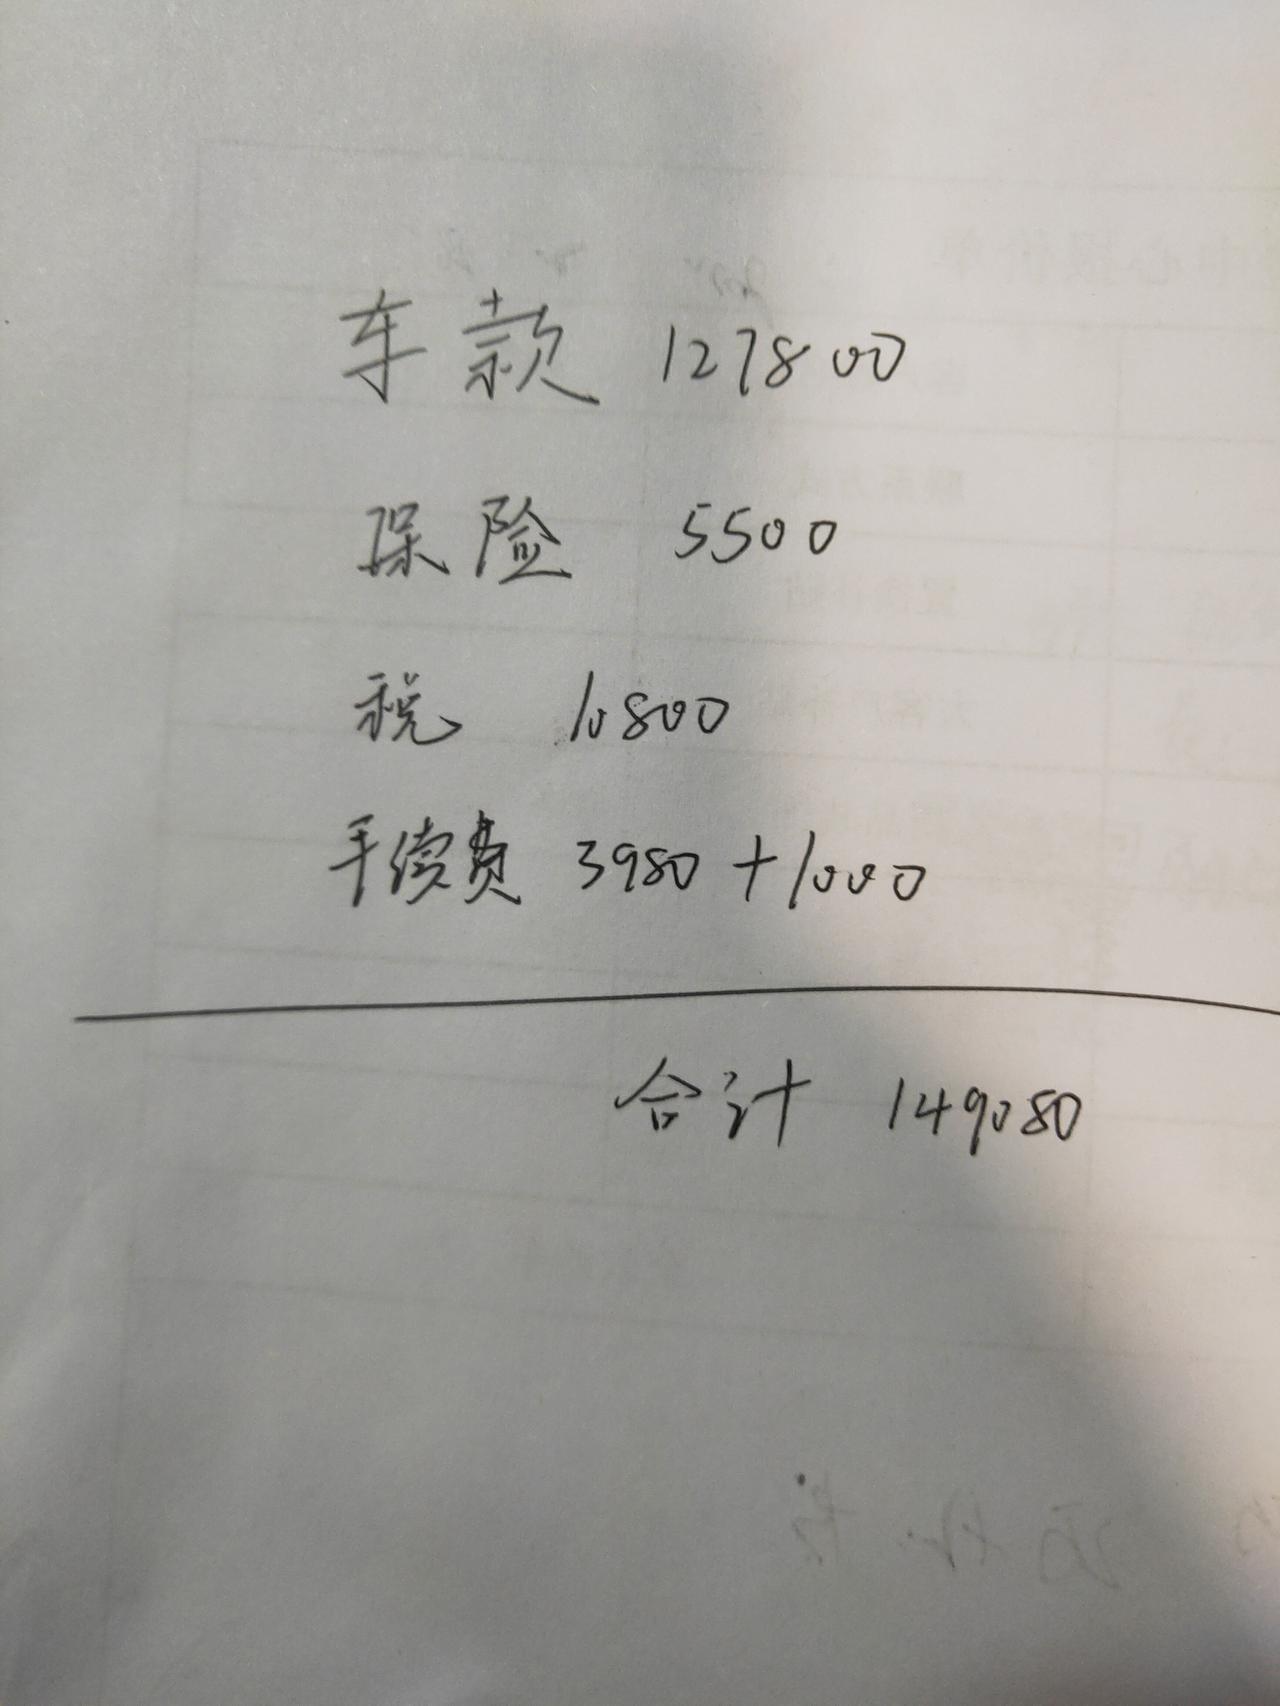 车款 127800
保险 5500
税 10800
手续费 3980+1000
合计 149080